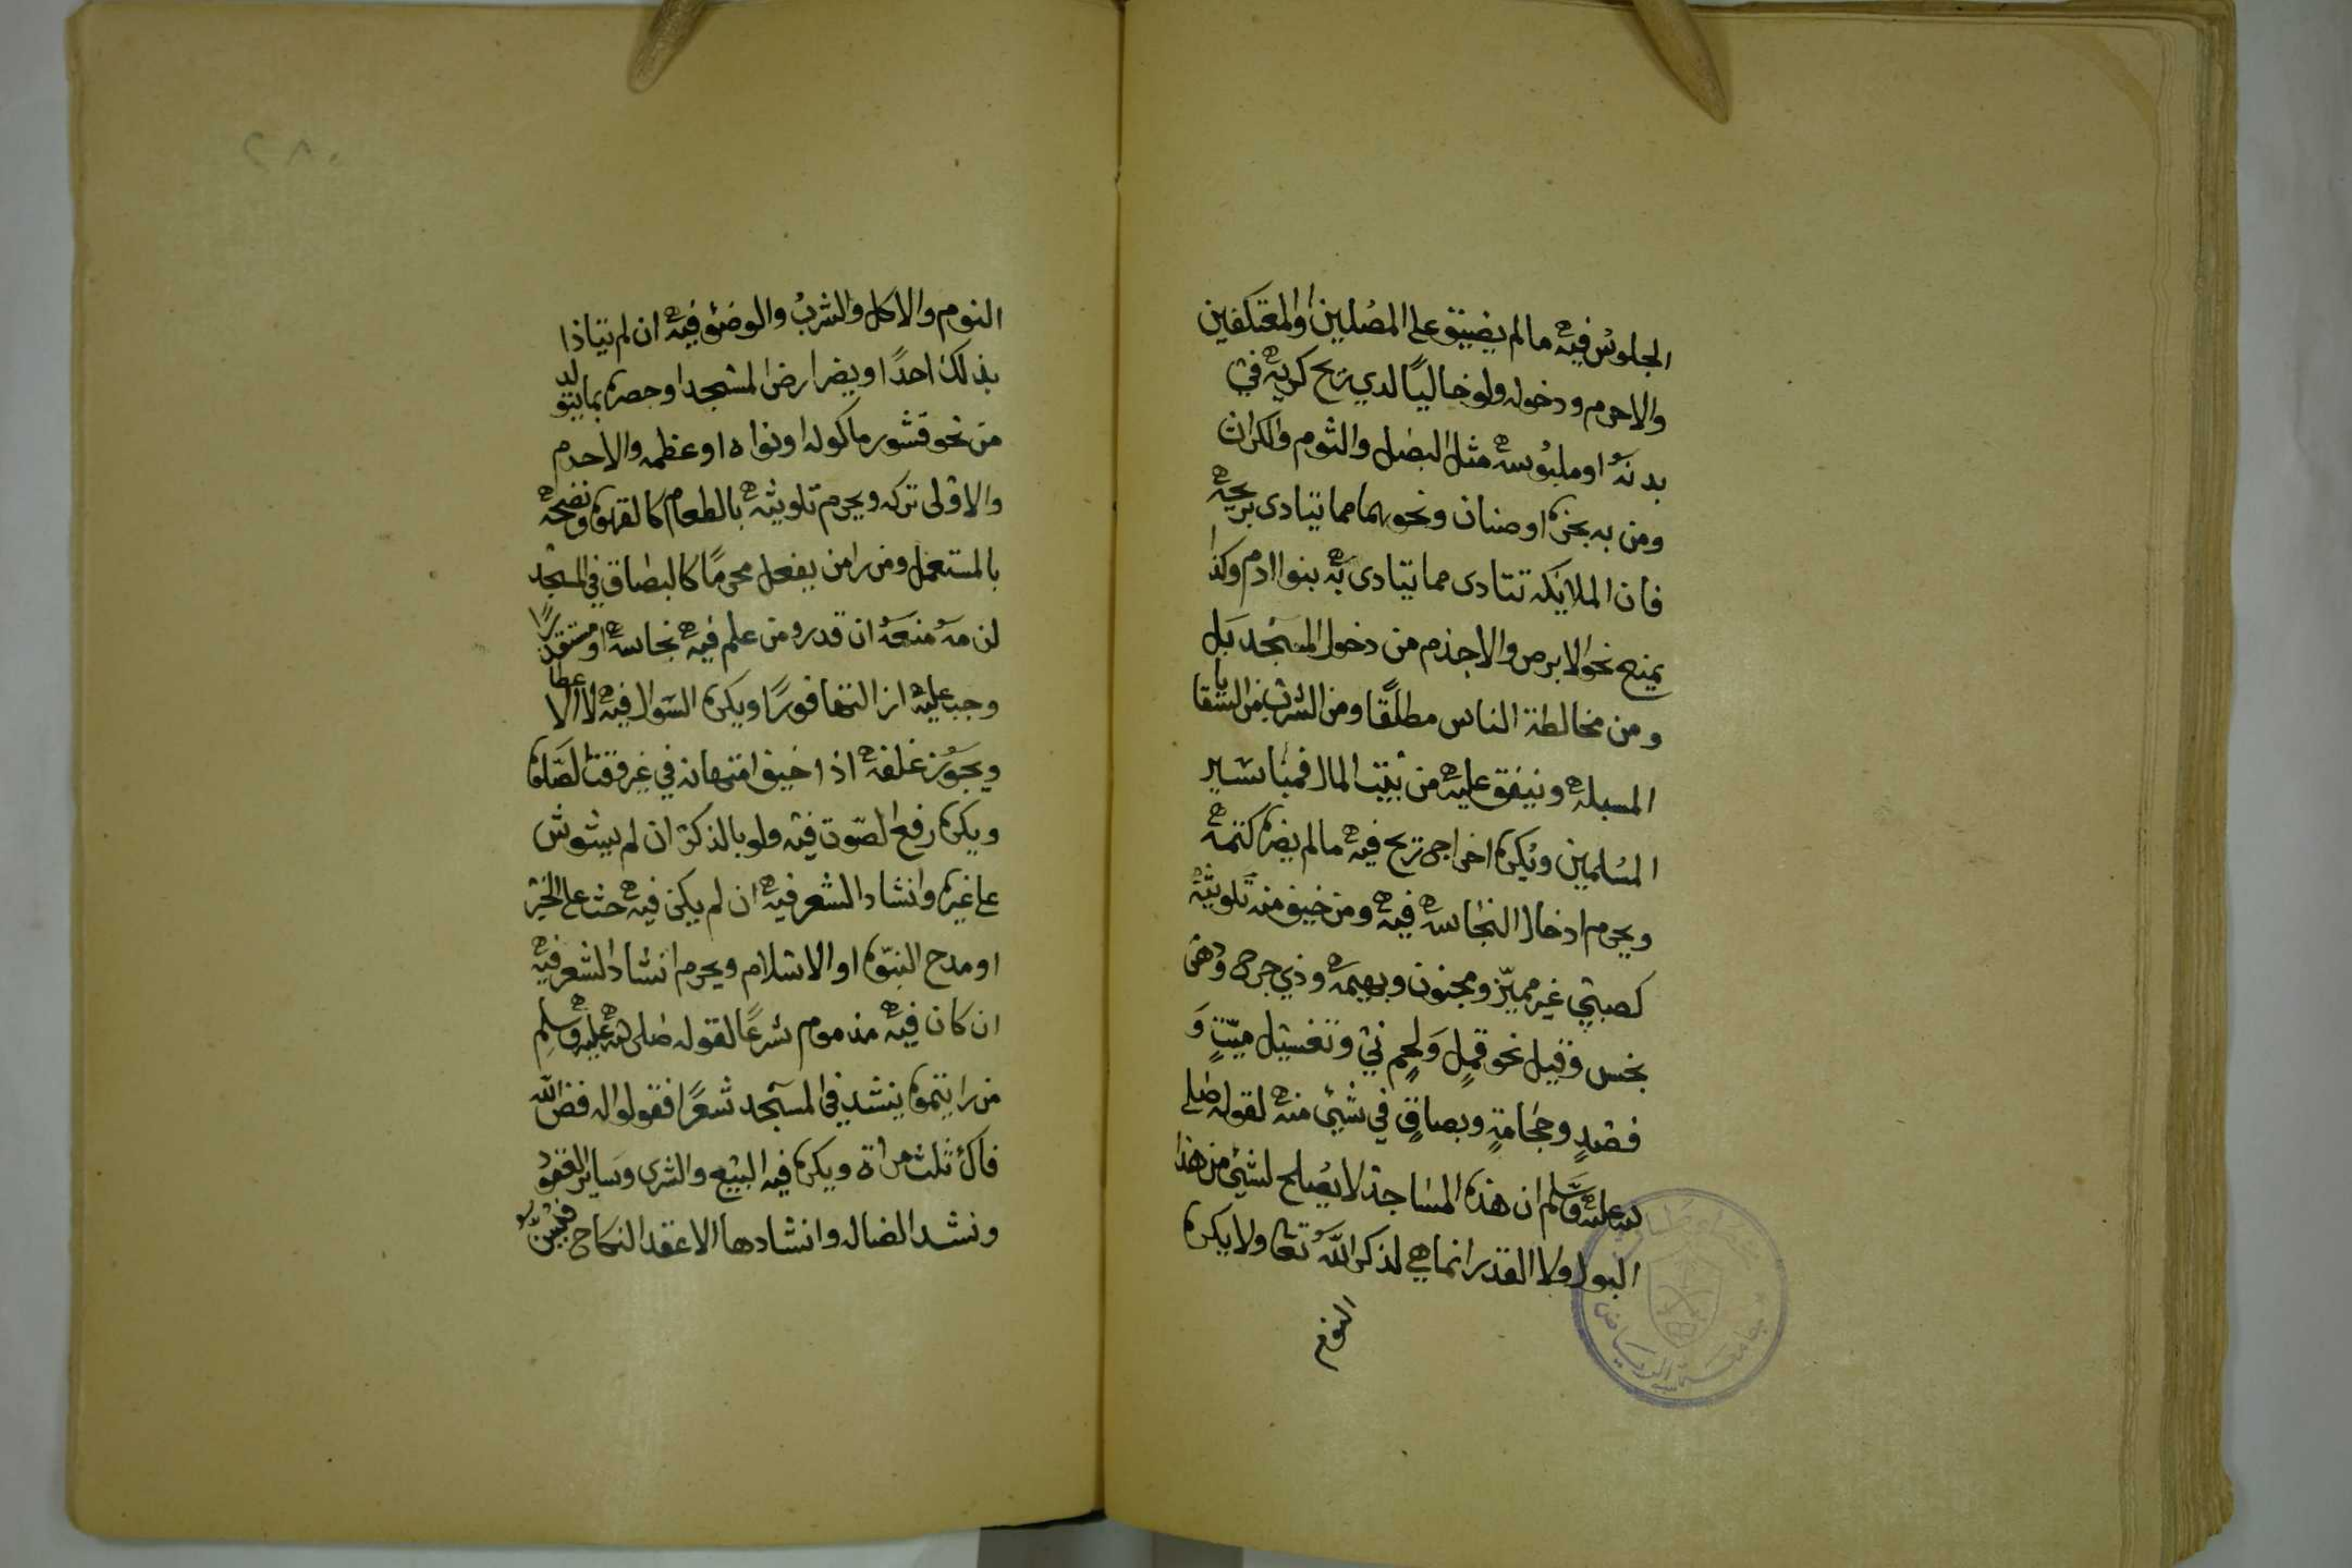 الجلوس فيه مالم يضيق على المصلين اوالمعتكفين
والاحرم ودخوله ولو خاليًا لذي ريح كريه في
بدنه او ملبوسه مثل البصل والثوم والكراث
ومن به بخر او صنان ونحوهما مما يتادى بريحه
فان الملايكه تتادى مما يتادى به بنوا ادم وكذا
يمنع نحو الابرص والاجذم من دخول المسجد بل
ومن مخالطة الناس مطلقًا ومن الشرب من السقايا
المسبله وينفق عليه من بيت المال فمياسير
المسلمين ويكره اخراج ريح فيه مالم يضره كتمه
ويحرم ادخال النجاسه فيه ومن خيف منه تلويثه
كصبي غير مميّز ومجنون وبهيمه وذي جرح ودهن
نجس وقتل نحو قملٍ ولحمٍ ني وتغسيل ميّتٍ وَ
فصدٍ وحجامةٍ وبصاقٍ في شيئ منه لقوله صلى
الله عليه وسلم ان هذه المساجد لا يصلح لشيئ من هذا
البول ولا القذر انما هي لذكر الله تعا ولا يكره
النوم
٢٨٠
النوم والاكل والشرب والوضئو فيه ان لم يتاذا
بذلك احدًا او يضر ارض المسجد او حصره بما يتولد
من نحو قشور ماكوله او نواه او عظمه والاحرم
والاولى تركه ويحرم تلويثه بالطعام كالقهوه ونضحه
بالمستعمل ومن رامن يفعل محرمًا كالبصاق في المسجد
لزمه منعه ان قدر ومن علم فيه نجاسه او مستقذرًا
وجب عليه ازالتها فورًا ويكره السوال فيه لا الاعطا
ويجوز غلقه اذا خيف امتهانه في غير وقت الصّلوه
ويكره رفع الصّوت فيه ولو بالذكر ان لم يشوش
على غيره وانشاد الشعر فيه ان لم يكن فيه حث على الخير
او مدح النبوّه او الاسلام ويحرم انشاد الشعر فيه
ان كان فيه مذموم شرعًا لقوله صلى الله عليه وسلم
من رايتموه ينشد في المسجد شعرًا فقولوا له فض الله
فاك ثلث مراة ويكره فيه البيع والشرى وساير العقود
ونشد الضاله وانشادها الاعقد النكاح فيسنّ